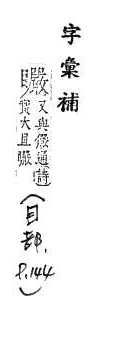 字彙補
又與儼通詩
大且
(目部.
P.144)